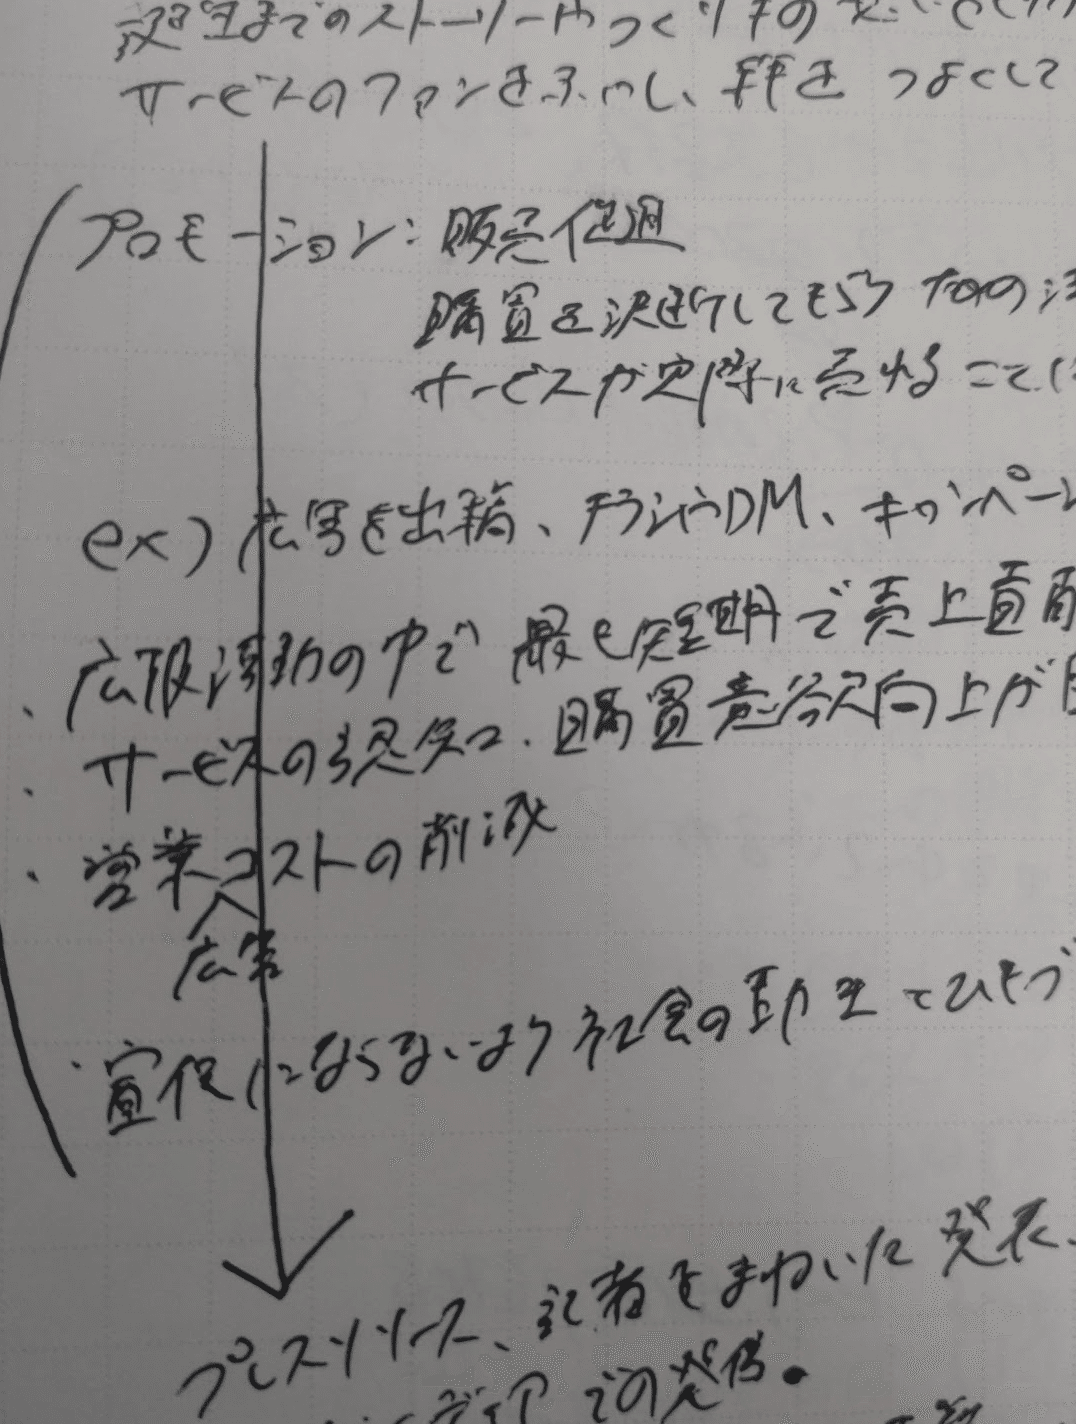 誕生までのストーリーやつくり手の
サービスのファンをふやし、絆をつよくして
プロモーション：販売促進
購買を決断してもらうための活
サービスが実際に売れること
ex）広告を出稿、チラシやDM、キャンペーン
・広報活動の中で最も短期で売上直
・サービスの認知・購買意欲向上が目
・営業コストの削減
広告
・宣伝にならないよう社会の動きとひもづ
プレスリリース、記者をまねいた発表、
メディアでの発信。